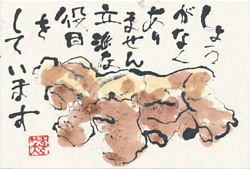 しょう
がなく
あり
ません
立派な
役目
を
しています